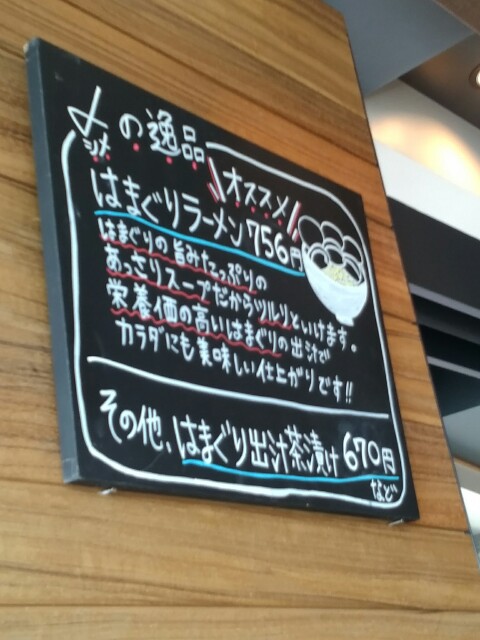 〆の逸品
シメ
オススメ
はまぐりラーメン756円
はまぐりの旨みたっぷりの
あっさりスープだからツルリといけます。
栄養価の高いはまぐりの出汁で!!
カラダにも美味しい仕上がりです!!
その他、はまぐり出汁茶漬け670円
など